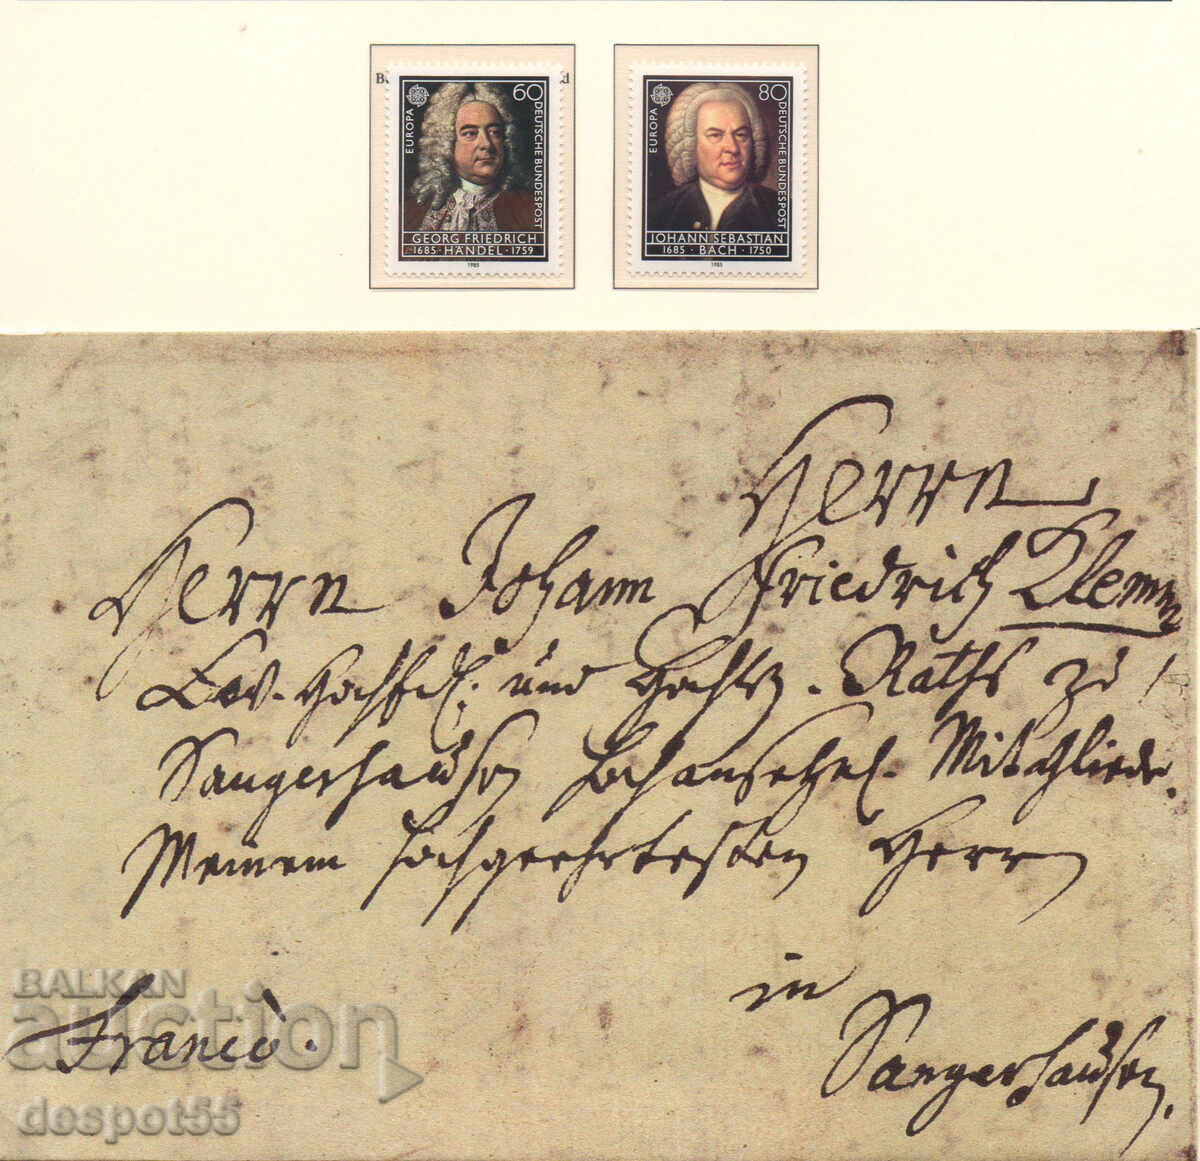 60
EUROPA
DEUTSCHE BUNDESPOST
GEORG FRIEDRICH
1685 · HÄNDEL · 1759
1985
80
EUROPA
DEUTSCHE BUNDESPOST
JOHANN SEBASTIAN
1685 · BACH · 1750
1985
Herrn
Herrn Johann Friedrich Klemm
und Raths zu
Sangerhausen Mitgliede.
Meinem hochgeehrtesten Herrn
in
Francò.
Sangerhausen.
BALKAN
auction
despot55